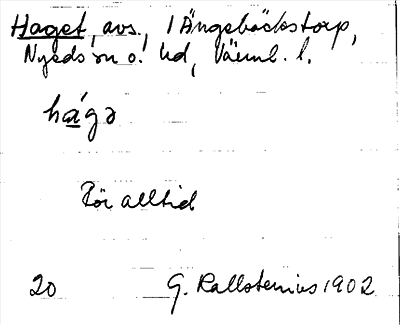 Haget, avs., 1 Ängebäckstorp,
Nyeds sn o. hd, Värml. l.
há̱gə
För alltid
20 G. Kallstenius 1902